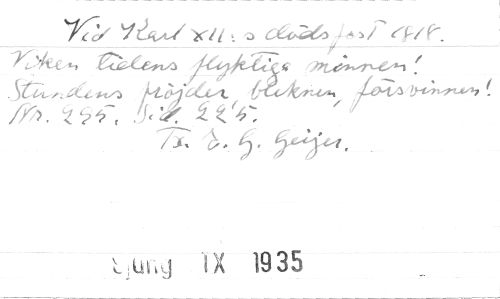 Vid Karl XII:s dödsfest 1818.
Viken tidens flyktiga minnen!
Stundens fröjder bleknen, försvinnen!
Nr. 295. Sid. 225.
Tx. E. G. Geijer.
Ljung IX 1935